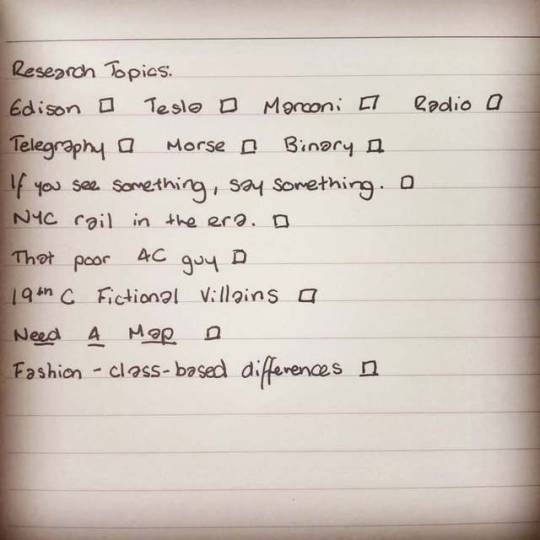 Research Topics:
Edison □ Tesla □ Marconi □ Radio □
Telegraphy □ Morse □ Binary □
If you see something, say something. □
NYC rail in the era. □
That poor AC guy □
19th C Fictional Villains □
Need A Map □
Fashion - class-based differences □